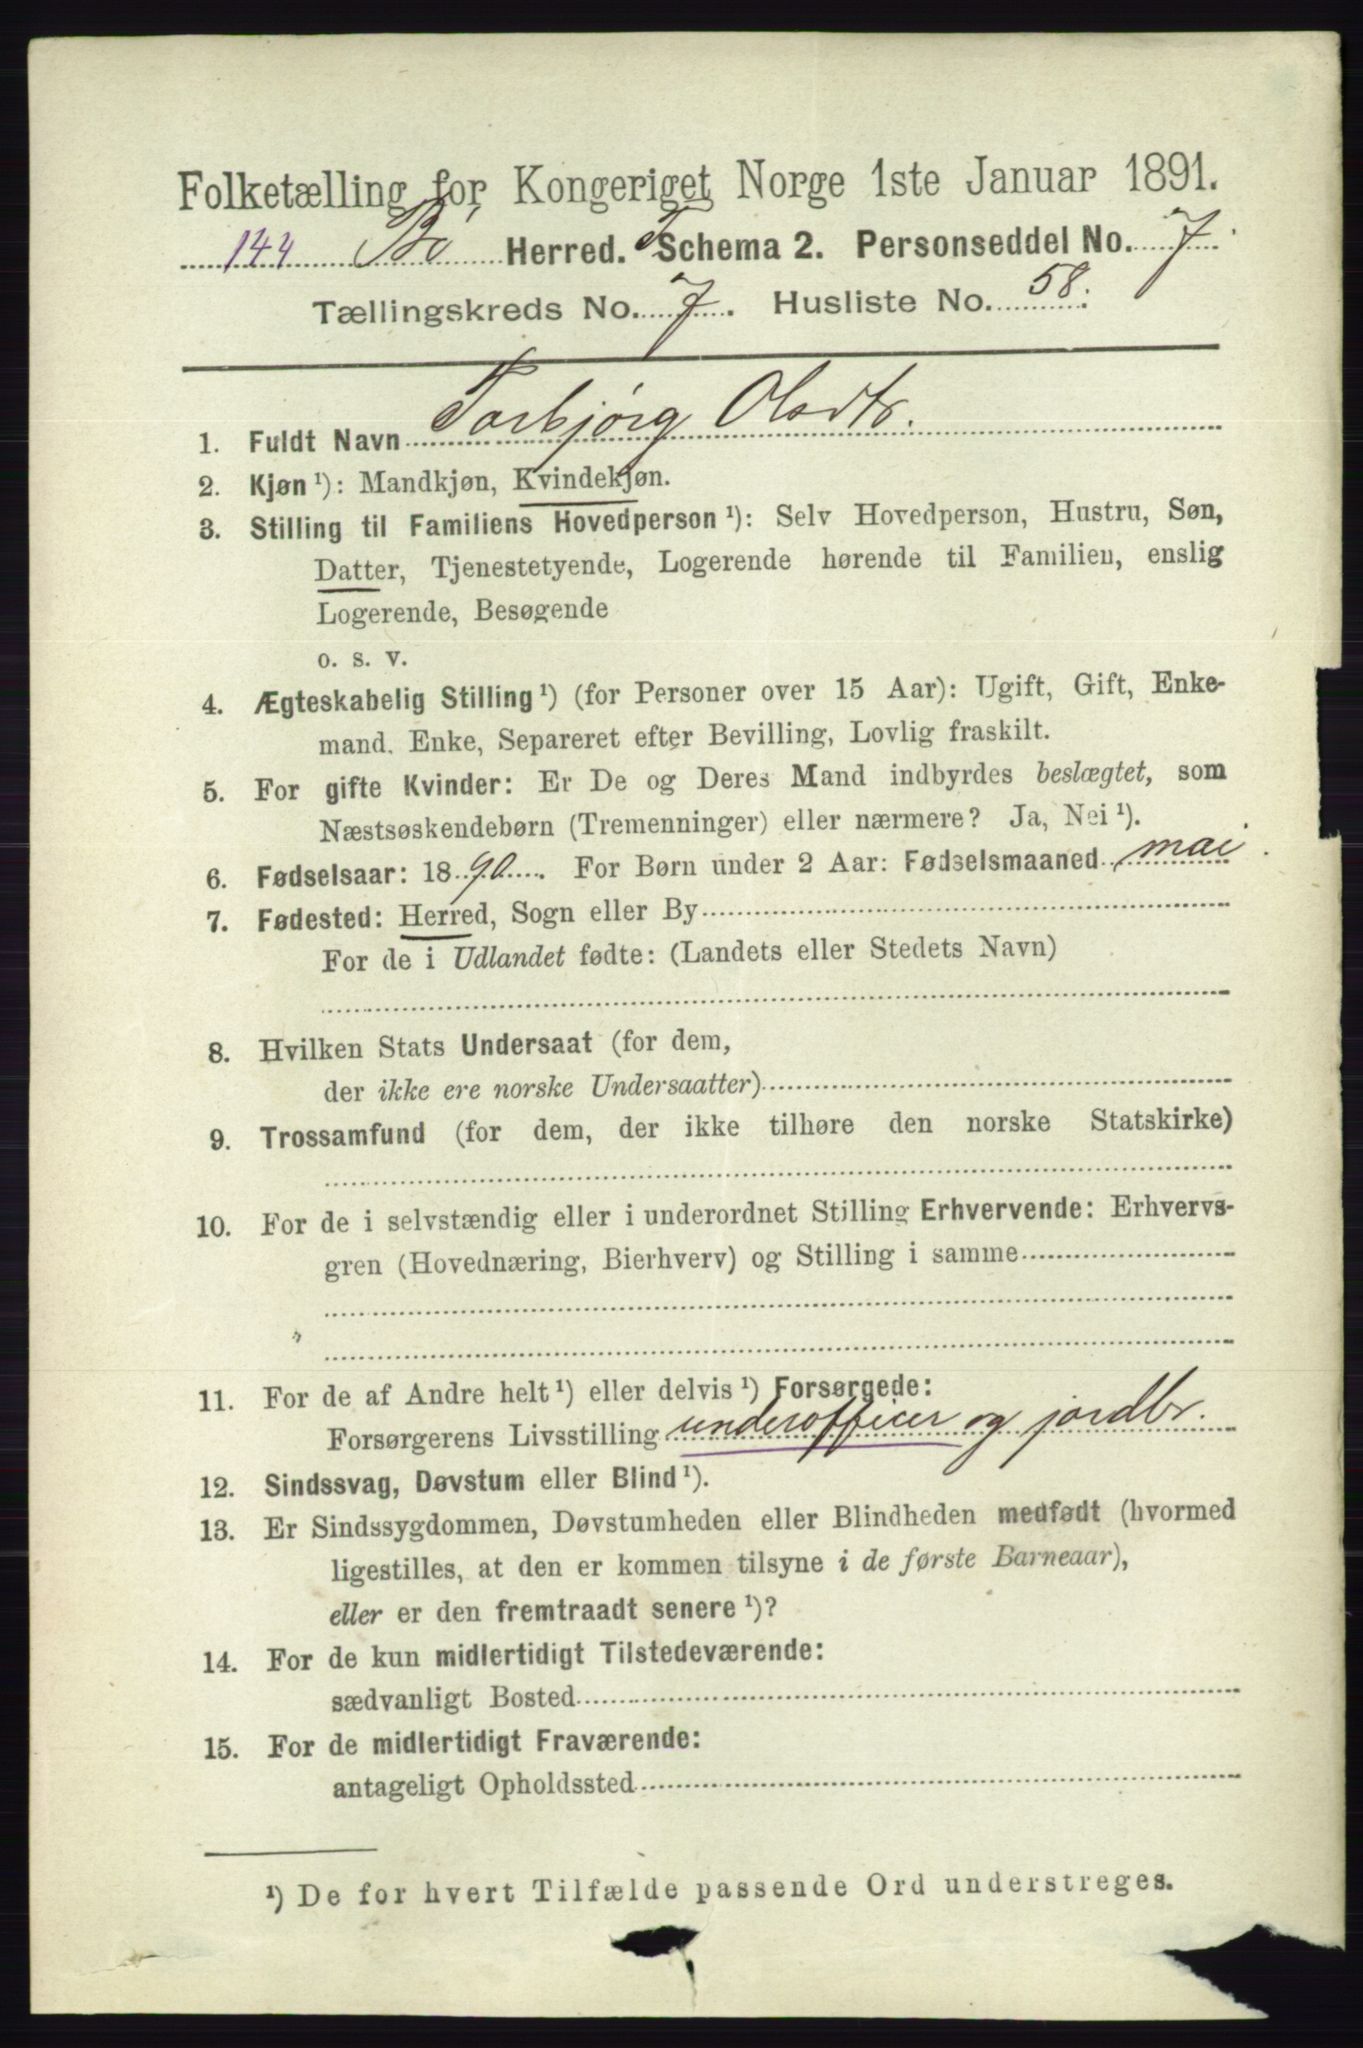 Folketælling for Kongeriget Norge 1ste Januar 1891.
144 Bø Herred. Schema 2. Personseddel No. 7.
Tællingskreds No. 7. Husliste No. 58.
1. Fuldt Navn Torbjørg Olsdtr.
2. Kjøn ¹): Mandkjøn, Kvindekjøn.
3. Stilling til Familiens Hovedperson ¹): Selv Hovedperson, Hustru, Søn,
Datter, Tjenestetyende, Logerende hørende til Familien, enslig
Logerende, Besøgende
o. s. v.
4. Ægteskabelig Stilling ¹) (for Personer over 15 Aar): Ugift, Gift, Enke-
mand, Enke, Separeret efter Bevilling, Lovlig fraskilt.
5. For gifte Kvinder: Er De og Deres Mand indbyrdes beslægtet, som
Næstsøskendebørn (Tremenninger) eller nærmere? Ja, Nei ¹).
6. Fødselsaar: 1890. For Børn under 2 Aar: Fødselsmaaned mai.
7. Fødested: Herred, Sogn eller By
For de i Udlandet fødte: (Landets eller Stedets Navn)
8. Hvilken Stats Undersaat (for dem,
der ikke ere norske Undersaatter)
9. Trossamfund (for dem, der ikke tilhøre den norske Statskirke)
10. For de i selvstændig eller i underordnet Stilling Erhvervende: Erhvervs-
gren (Hovednæring, Bierhverv) og Stilling i samme
11. For de af Andre helt ¹) eller delvis ¹) Forsørgede:
Forsørgerens Livsstilling underofficer og jordbr.
12. Sindssvag, Døvstum eller Blind ¹).
13. Er Sindssygdommen, Døvstumheden eller Blindheden medfødt (hvormed
ligestilles, at den er kommen tilsyne i de første Barneaar),
eller er den fremtraadt senere ¹)?
14. For de kun midlertidigt Tilstedeværende:
sædvanligt Bosted
15. For de midlertidigt Fraværende:
antageligt Opholdssted
¹) De for hvert Tilfælde passende Ord understreges.